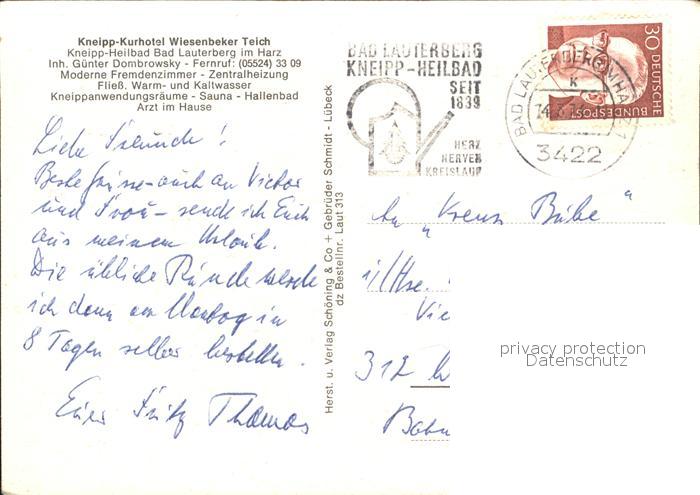 Kneipp-Kurhotel Wiesenbeker Teich
Kneipp-Heilbad Bad Lauterberg im Harz
Inh. Günter Dombrowsky - Fernruf: (05524) 33 09
Moderne Fremdenzimmer - Zentralheizung
Fließ. Warm- und Kaltwasser
Kneippanwendungsräume - Sauna - Hallenbad
Arzt im Hause
Liebe Freunde!
Beste Grüsse - auch an Victor
und Frau - sende ich Euch
aus meinem Urlaub.
Die übliche Runde werde
ich dann am Montag in
8 Tagen selber bestellen.
Euer Fritz Thomas
Herst. u. Verlag Schöning & Co + Gebrüder Schmidt - Lübeck
dz Bestellnr. Laut 313
BAD LAUTERBERG
KNEIPP-HEILBAD
SEIT
1839
HERZ
NERVEN
KREISLAUF
BAD LAUTERBERG IM HARZ 1
3422
30
DEUTSCHE
BUNDESPOST
An "Bübe"
i/Hse.
Vic
312
Bahn
privacy protection
Datenschutz